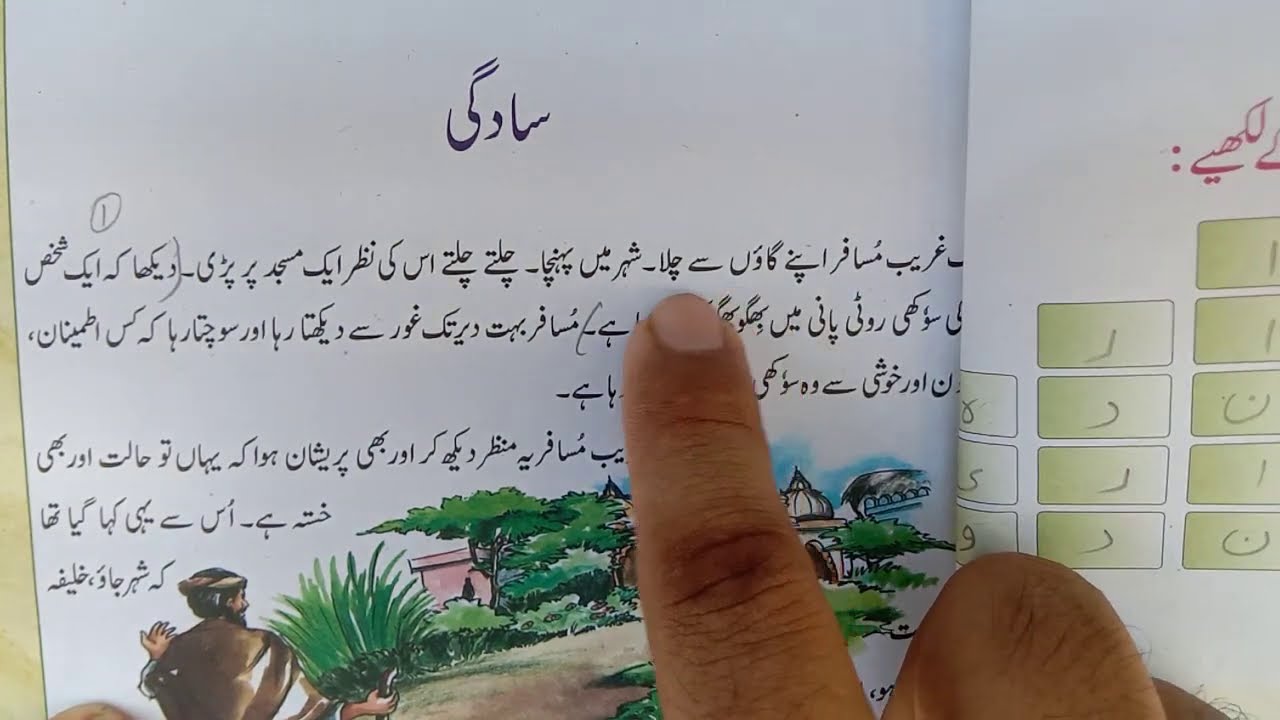 سادگی
۱
غریب مُسافر اپنے گاؤں سے چلا۔ شہر میں پہنچا۔ چلتے چلتے اس کی نظر ایک مسجد پر پڑی۔ دیکھا کہ ایک شخص
سوٗکھی روٹی پانی میں بھگو ہے۔ مُسافر بہت دیر تک غور سے دیکھتا رہا اور سوچتا رہا کہ کس اطمینان،
اور خوشی سے وہ سوٗکھی ہے۔
مُسافر یہ منظر دیکھ کر اور بھی پریشان ہوا کہ یہاں تو حالت اور بھی
خستہ ہے۔ اُس سے یہی کہا گیا تھا
کہ شہر جاؤ، خلیفہ
ہو،
لکھیے :
ا
ا ر
ن د ہ
ا ر ی
ن د و